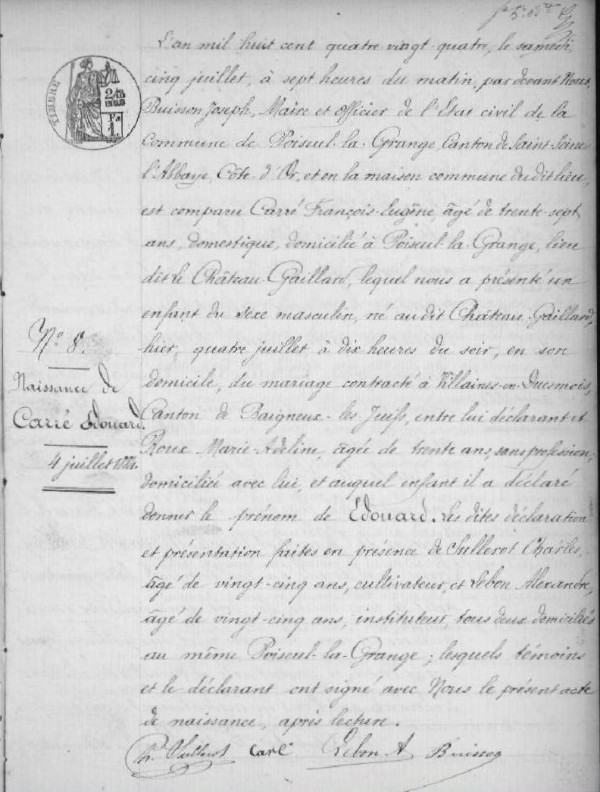 L'an mil huit cent quatre vingt-quatre, le samedi
cinq juillet, à sept heures du matin, par devant Nous,
Buisson Joseph, Maire et officier de l'Etat civil de la
Commune de Poiseul-la-Grange, Canton de Saint-Seine
l'Abbaye, Côte-d'Or, et en la maison commune du dit lieu,
est comparu Carré François-Eugène, âgé de trente-sept
ans, domestique, domicilié à Poiseul-la-Grange, lieu
dit le Château-Gaillard, lequel nous a présenté un
enfant du sexe masculin, né au dit Château-Gaillard,
hier, quatre juillet à dix heures du soir, en son
domicile, du mariage contracté à Villaines-en-Duesmois,
Canton de Baigneux-les-Juifs, entre lui déclarant et
Roux Marie-Adeline, âgée de trente ans, sans profession,
domiciliée avec lui, et auquel enfant il a déclaré
donner le prénom de Edouard. Les dites déclaration
et présentation faites en présence de Charles,
âgé de vingt-cinq ans, cultivateur, et Lebon Alexandre,
âgé de vingt-cinq ans, instituteur, tous deux domiciliés
au même Poiseul-la-Grange ; lesquels témoins
et le déclarant ont signé avec Nous le présent acte
de naissance, après lecture.
Carré Lebon A Buisson
N° 8.
Naissance de
Carré Edouard.
4 juillet 1884.
TIMBRE